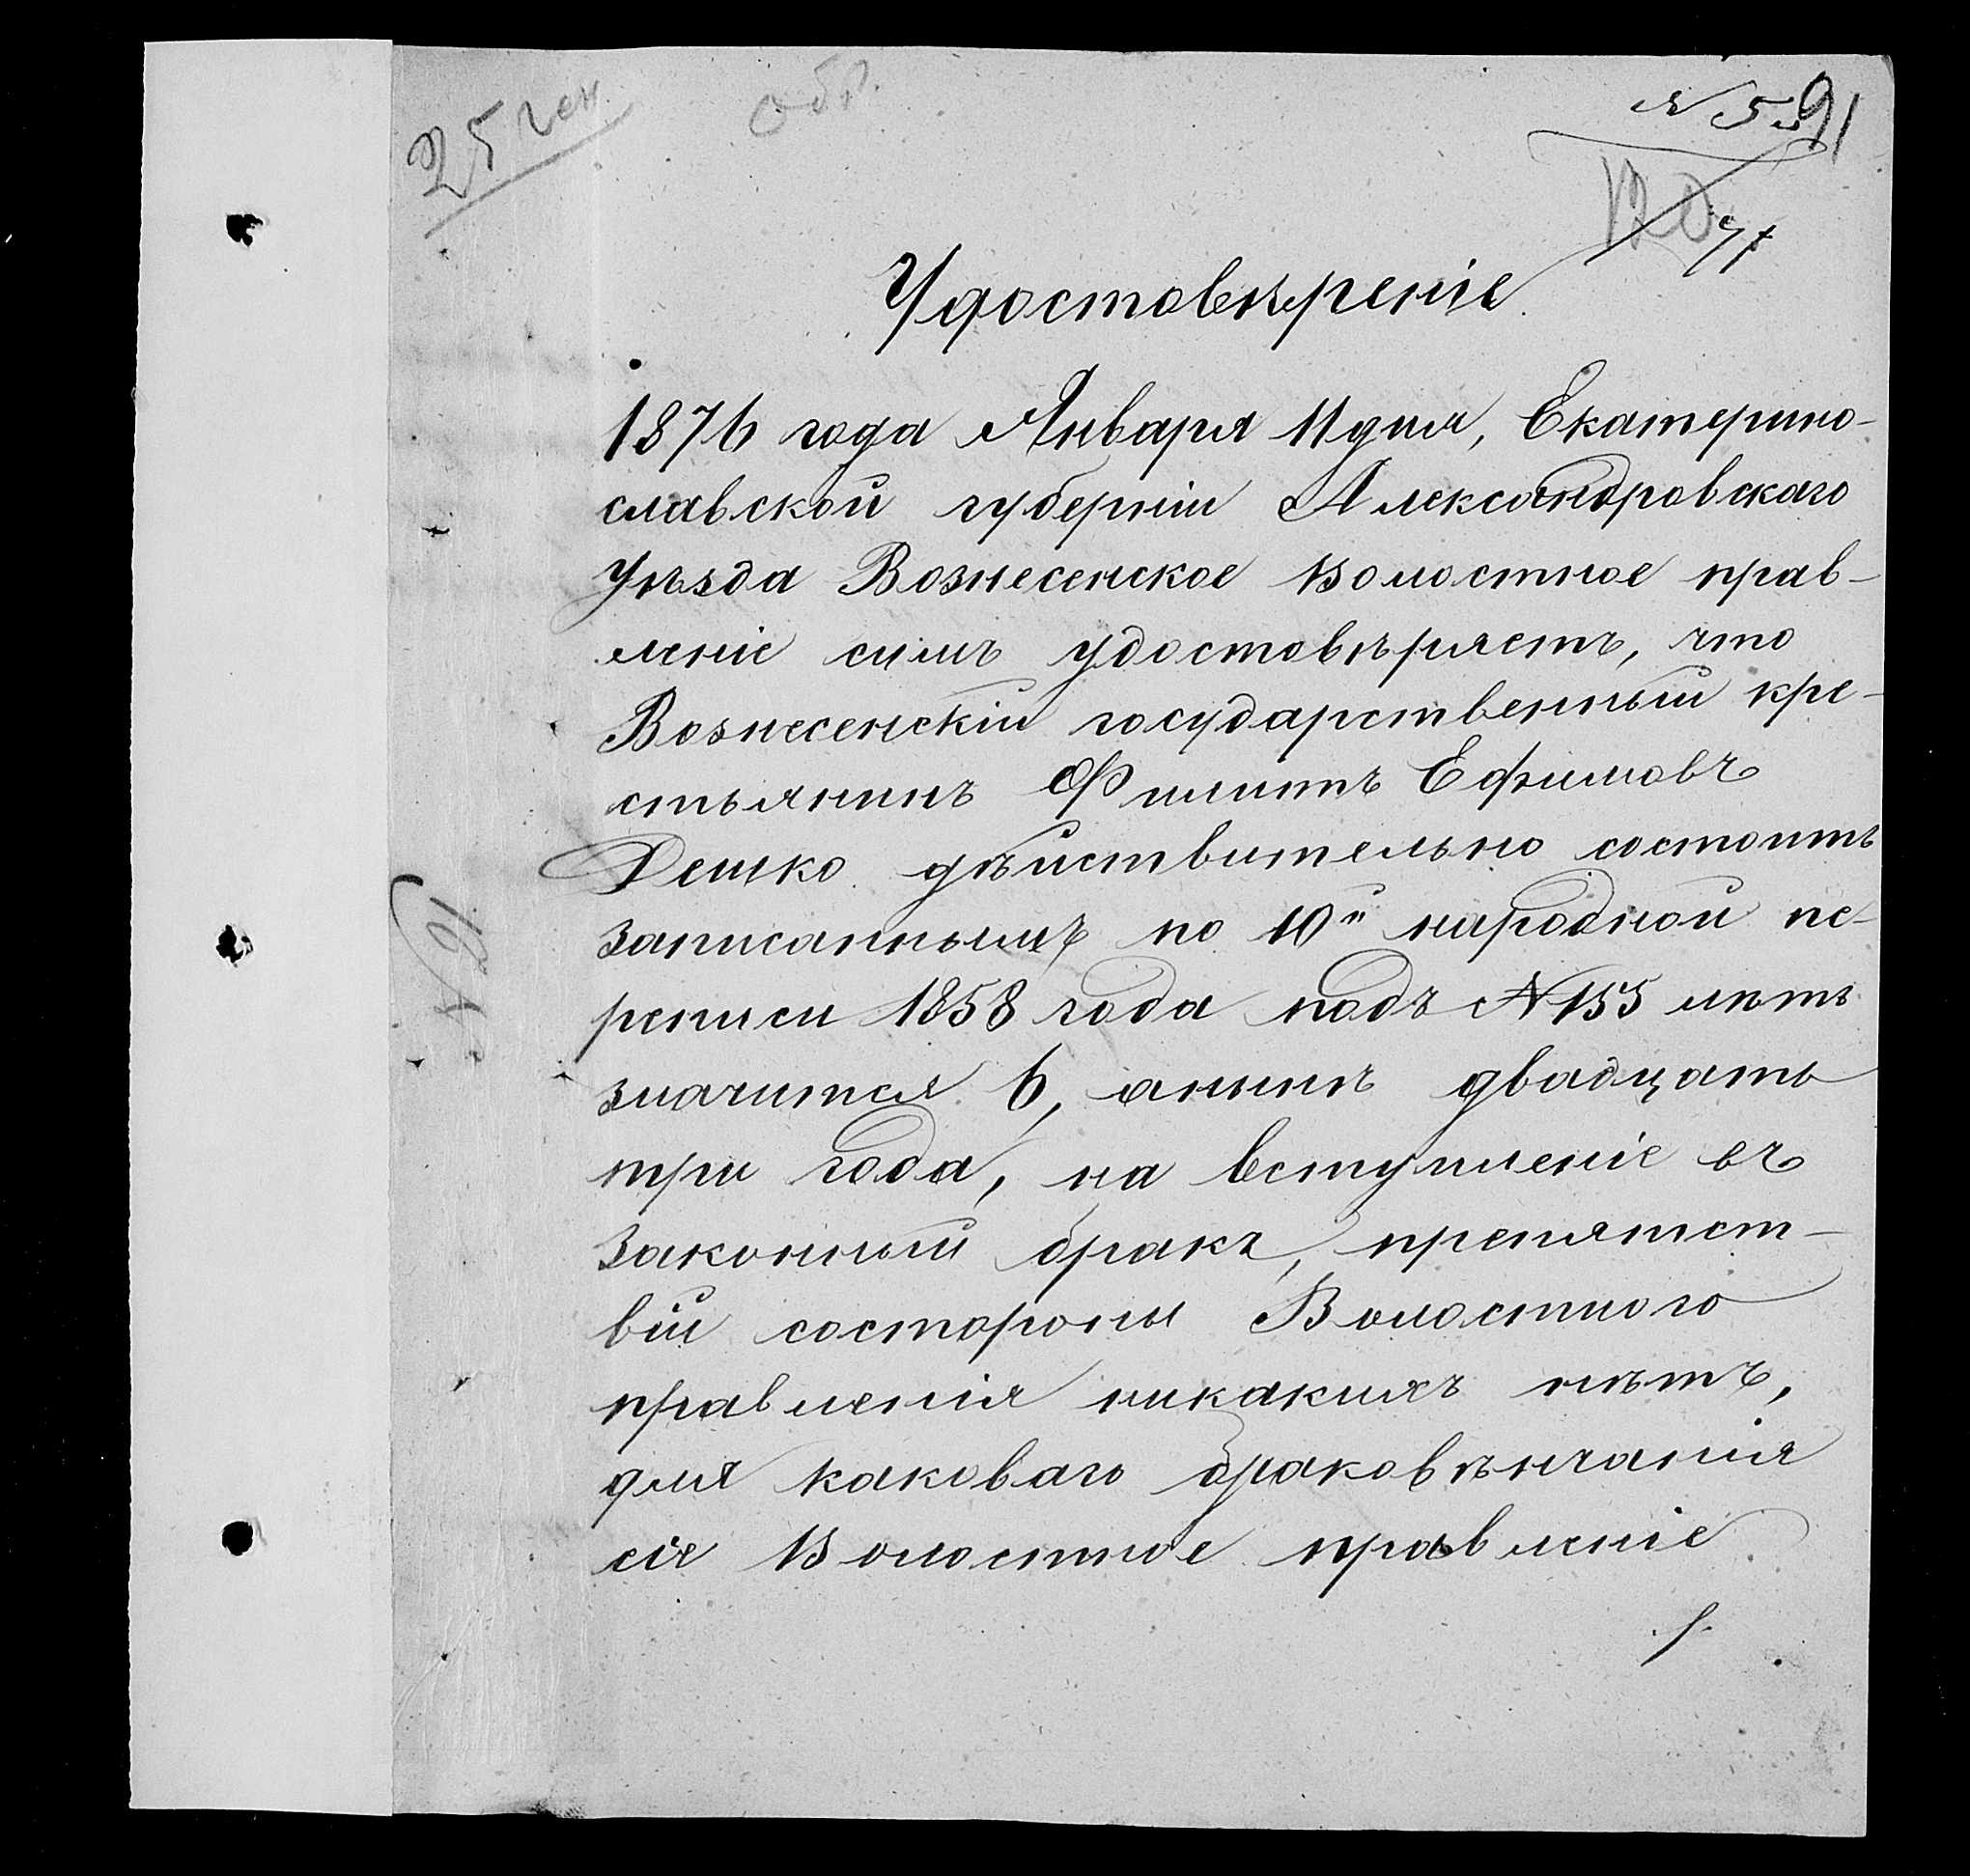 25 ген
обр.
N 5й
91
120
97
Удостовѣреніе
1876 года Января 11 дня, Екатерино-
славской губерніи Александровскаго
уѣзда Вознесенское волостное прав-
леніе симъ удостовѣряетъ, что
Вознесенскій государственный кре-
стьянинъ Филипъ Ефимовъ
Дешко дѣйствительно состоитъ
записаннымъ по 10й народной пе-
реписи 1858 года подъ N 155 лѣтъ
значится 6, анынѣ двадцать
три года, на вступленіе въ
законный бракъ, препятст-
вій состороны Волостного
правленія никакихъ нѣтъ,
для каковаго браковѣнчанія
сіе Волостное правленіе